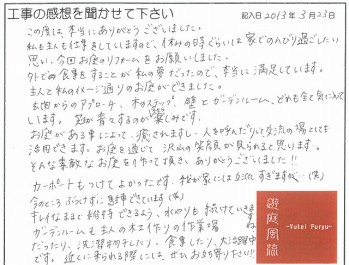 工事の感想を聞かせて下さい
記入日2013年3月23日
この度は、本当にありがとうございました。
私も主人も仕事をしていますので、休みの時ぐらいは家でのんびり過ごしたい
思い、今回お庭のリフォームをお願いしました。
外でお食事をすることが私の夢だったので、本当に満足しています。
主人と私のイメージ通りのお庭ができました。
玄関からのアプローチ、木のステップ、壁とガーデンルーム、どれも全て気に入って
います。 が育てるのが楽しみです。
お庭がある事によって、癒されますし、人を呼んだりして交流の場としても
活用できます。お庭を通じて沢山の笑顔が見られると思います。
そんな素敵なお庭を作って頂き、ありがとうございました!!
カーポートもつけてよかったです。我が家には立派すぎますが…(笑)
今のところぶつけずに駐車できています(笑)
キレイなままで維持できるよう、水やりも続けていきますね
ガーデンルームも主人の木工作りの作業場
だったり、洗濯物干したり、食事したり、大活躍中
です。近くに来られる際には、ぜひお立ち寄り下さい!!
遊庭風流
-Yutei Furyu-